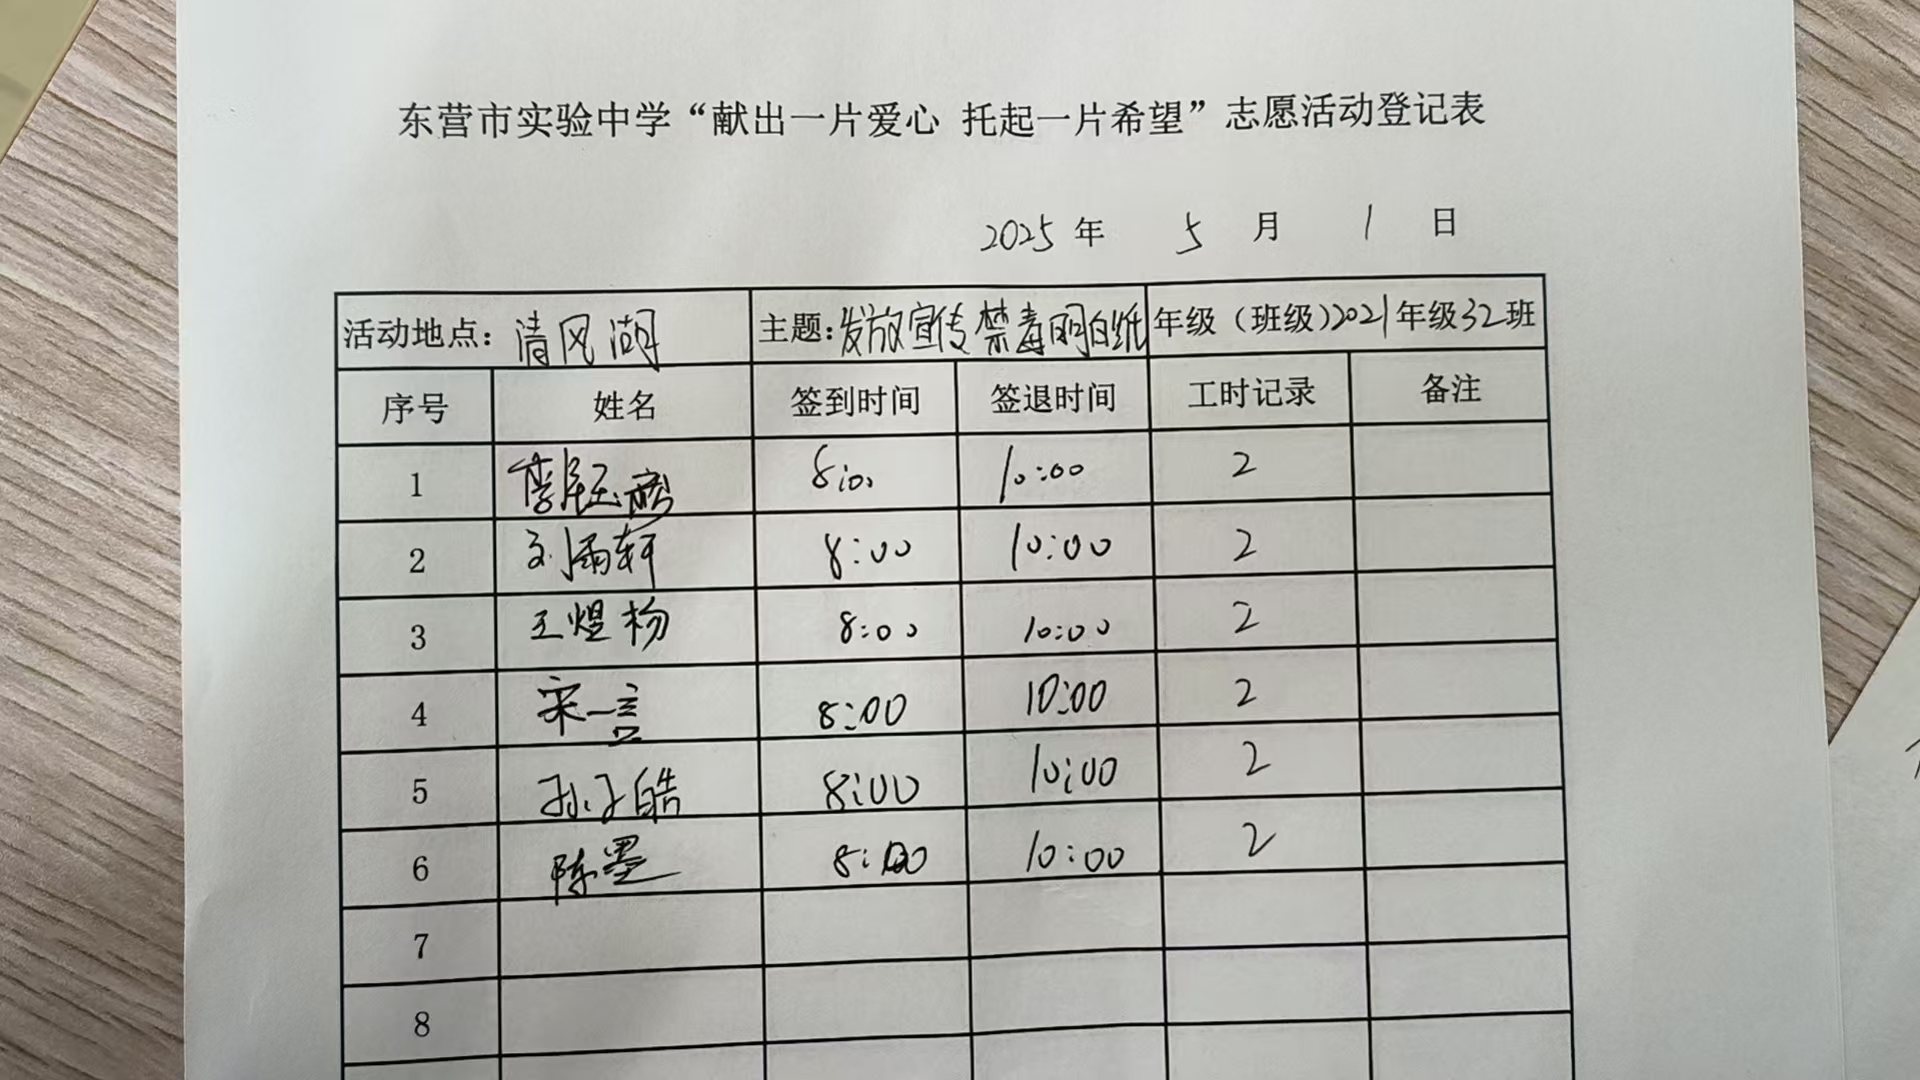 东营市实验中学“献出一片爱心 托起一片希望”志愿活动登记表
2025年 5月 1日
活动地点：清风湖 主题：发放宣传禁毒明白纸 年级（班级）2021年级32班
序号 姓名 签到时间 签退时间 工时记录 备注
1 8:00 10:00 2
2 刘雨轩 8:00 10:00 2
3 王煜杨 8:00 10:00 2
4 宋一言 8:00 10:00 2
5 孙子皓 8:00 10:00 2
6 陈墨 8:00 10:00 2
7
8